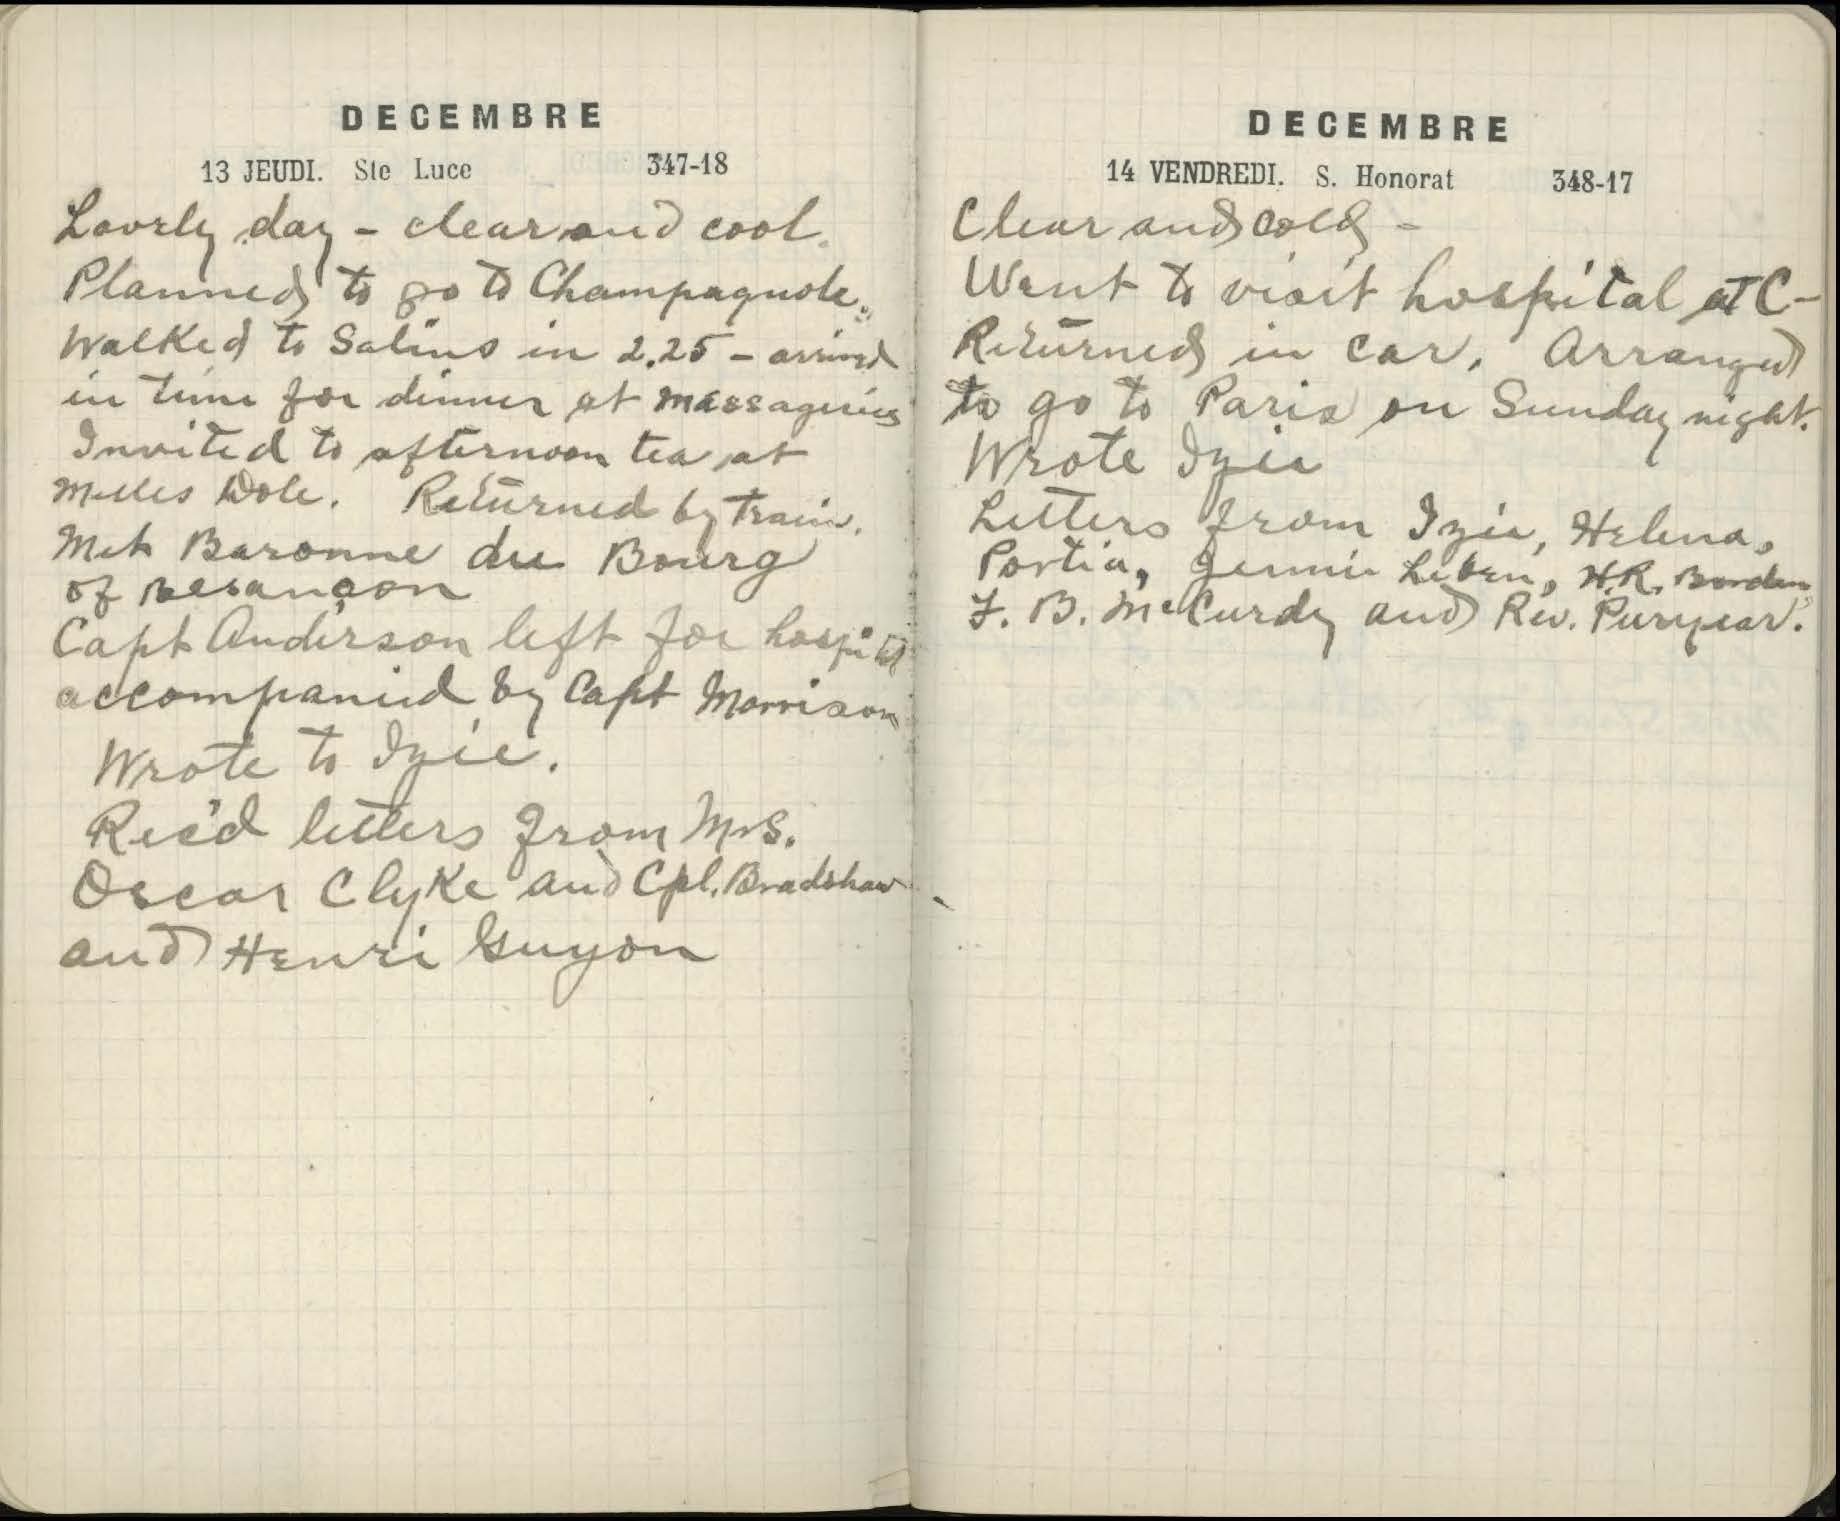 DECEMBRE
13 JEUDI. Ste Luce 347-18
Lovely day - clear and cool.
Planned to go to Champagnole.
Walked to Salins in 2.25 - arrived
in time for dinner at Messageries
Invited to afternoon tea at
Mlles Dole. Returned by train.
Met Baronne du Bourg
of Besançon
Capt Anderson left for hospital
accompanied by Capt Morrison
Wrote to Izie.
Rec'd letters from Mrs.
Oscar Clyke and Cpl. Bradshaw
and Henri Guyon
DECEMBRE
14 VENDREDI. S. Honorat 348-17
Clear and cold -
Went to visit hospital at C-
Returned in car. Arranged
to go to Paris on Sunday night.
Wrote Izie
Letters from Izie, Helena,
Portia, Jennie, H.R. Borden,
F. B. McCurdy and Rev. Puryear.